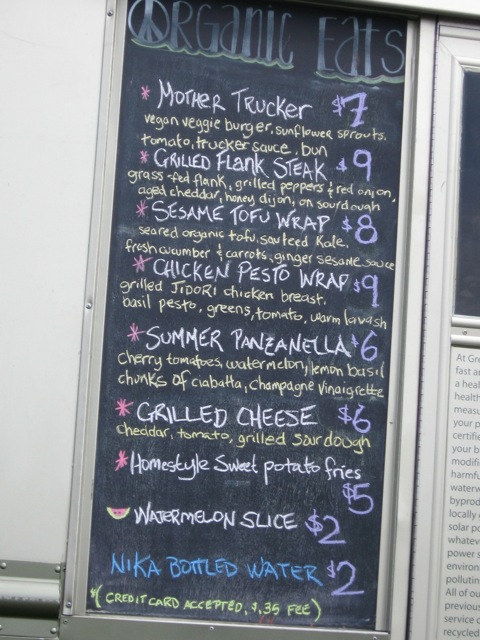 ORGANIC Eats
* MOTHER TRUCKER $7
vegan veggie burger, sunflower sprouts,
tomato, trucker sauce, bun
* GRILLED FLANK STEAK $9
grass-fed flank, grilled peppers & red onion,
aged cheddar, honey dijon, on sourdough
* SESAME TOFU WRAP $8
seared organic tofu, sauteed kale,
fresh cucumber & carrots, ginger sesame sauce
* CHICKEN PESTO WRAP $9
grilled JIDORI chicken breast,
basil pesto, greens, tomato, warm lavash
* SUMMER PANZANELLA $6
cherry tomatoes, watermelon, lemon basil
chunks of ciabatta, champagne vinaigrette
* GRILLED CHEESE $6
cheddar, tomato, grilled sourdough
* Homestyle Sweet potato fries
$5
WATERMELON SLICE $2
NIKA BOTTLED WATER $2
*(CREDIT CARD ACCEPTED, $.35 FEE)
At Gr
fast a
a heal
health
measu
your p
certifie
your b
modifi
harmfu
waterw
byprod
locally
solar po
whatev
power s
environ
pollutin
All of ou
previous
service c
recycled